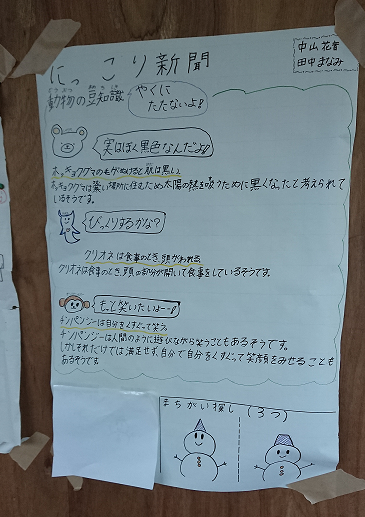 にっこり新聞
中山 花音
田中 まなみ
動物の豆知識
どうぶつ まめちしき
やくに
たたないよ!
実はぼく黒色なんだよ!
ホッキョクグマのもがぬけると肌は黒い。
ホッキョクグマは寒い場所に住むため太陽の熱を吸うために黒くなったと考えられて
いるそうです。
びっくりするかな?
クリオネは食事のとき、頭がわれる。
クリオネは食事のとき、頭の部分が開いて食事をしているそうです。
もっと笑いたいよー!
チンパンジーは自分をくすぐって笑う。
チンパンジーは人間のように遊びながら笑うこともあるそうです。
しかしそれだけでは満足せず、自分で自分をくすぐって笑顔をみせることも
あるそうです。
まちがい探し (3つ)